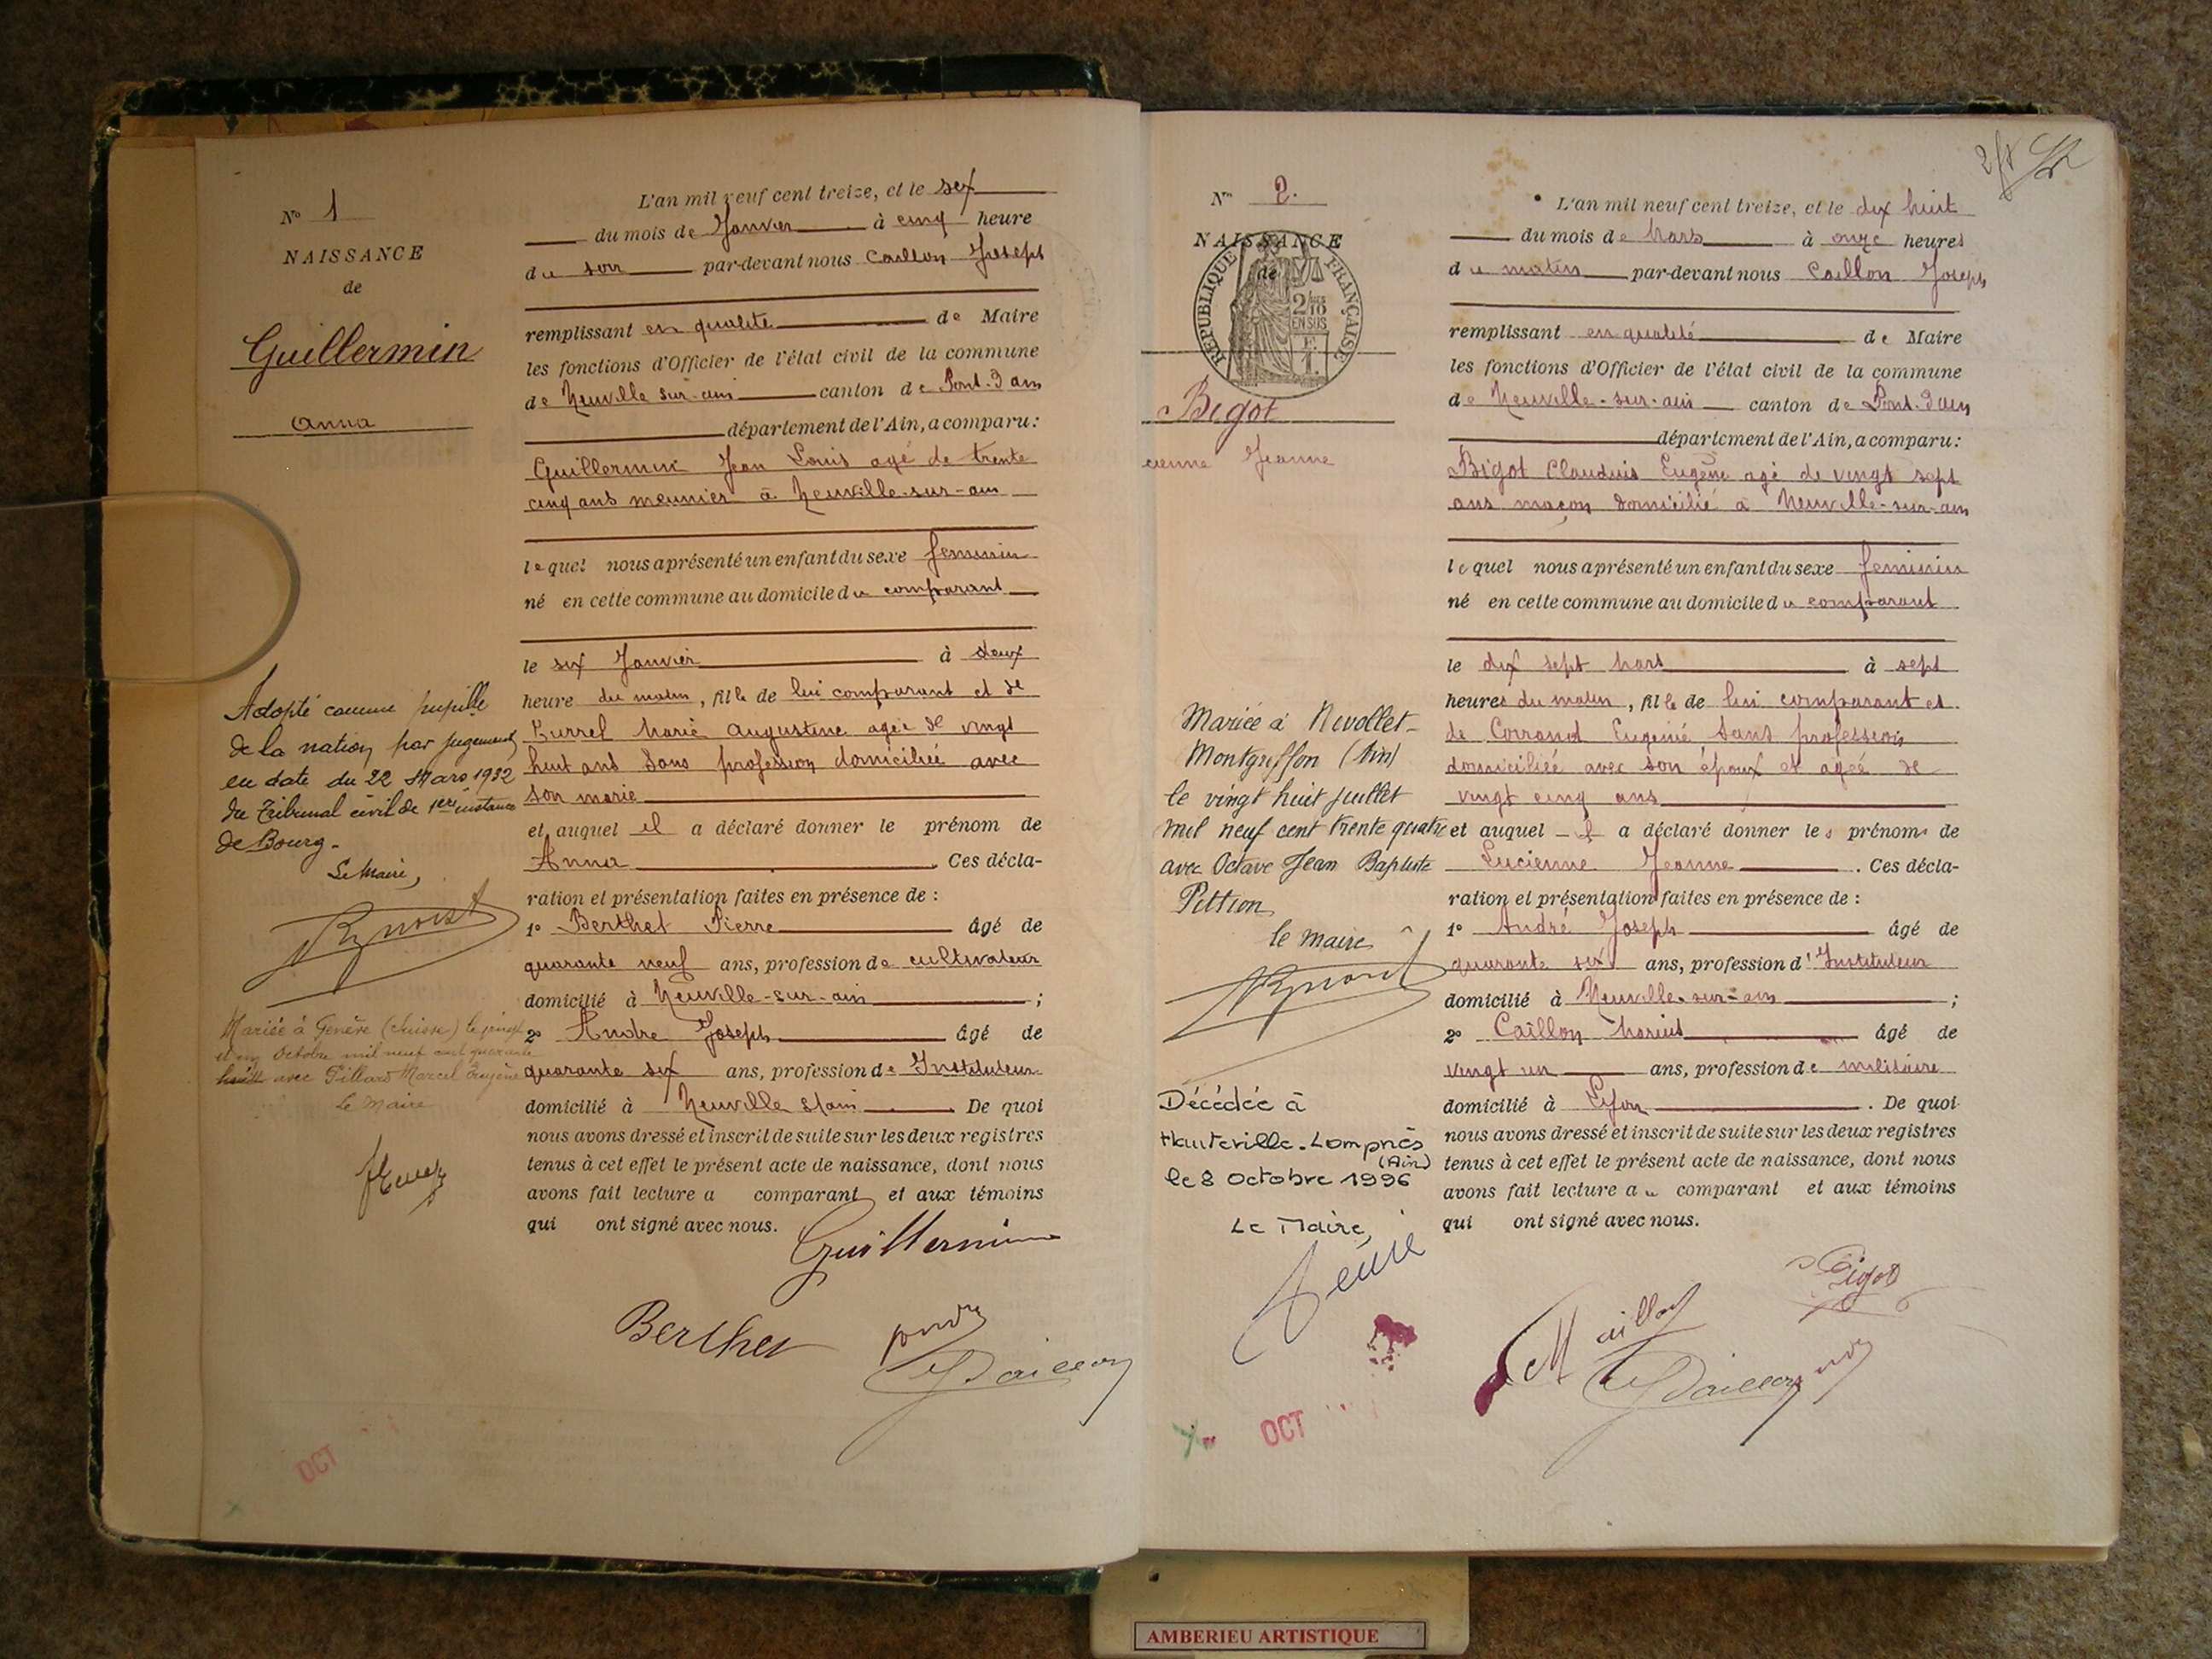 N° 1
NAISSANCE
de
Guillermin
Anna
Adopté comme pupille
de la nation par jugement
en date du 22 Mars 1932
du Tribunal civil de 1ère instance
de Bourg.
Le Maire,
Mariée à Genève (Suisse) le
et un Octobre mil neuf cent quarante
huit avec Pillard Marcel Eugène
Le Maire
L'an mil neuf cent treize, et le six
du mois de Janvier à cinq heure
du soir par-devant nous Caillon Joseph
remplissant en qualité de Maire
les fonctions d'Officier de l'état civil de la commune
de Neuville sur-ain canton de Pont-d'ain
département de l'Ain, a comparu :
Guillermin Jean Louis agé de trente
cinq ans meunier à Neuville-sur-ain
lequel nous a présenté un enfant du sexe feminin
né en cette commune au domicile du comparant
le six Janvier à deux
heure du matin, fille de lui comparant et de
Marie Augustine agée de vingt
huit ans sans profession domiciliée avec
son marie
et auquel il a déclaré donner le prénom de
Anna. Ces décla-
ration et présentation faites en présence de :
1° Berthet Pierre âgé de
quarante neuf ans, profession de cultivateur
domicilié à Neuville-sur-ain ;
2° Andre Joseph âgé de
quarante six ans, profession de Instituteur
domicilié à Neuville s/ain. De quoi
nous avons dressé et inscrit de suite sur les deux registres
tenus à cet effet le présent acte de naissance, dont nous
avons fait lecture a comparant et aux témoins
qui ont signé avec nous.
Guillermin
Berthet
OCT
N° 2.
NAISSANCE
de
RÉPUBLIQUE FRANÇAISE
2/10
EN SUS
F.
1.
Bigot
cienne Jeanne
Mariée à Nivollet-
Montgriffon (Ain)
le vingt huit juillet
mil neuf cent trente quatre
avec Octave Jean Baptiste
Pittion
le maire
Décédée à
Hauteville-Lompnès
(Ain)
le 8 Octobre 1996
Le Maire,
OCT
L'an mil neuf cent treize, et le dix huit
du mois de Mars à onze heures
du matin par-devant nous Caillon Joseph
remplissant en qualité de Maire
les fonctions d'Officier de l'état civil de la commune
de Neuville-sur-ain canton de Pont-d'ain
département de l'Ain, a comparu :
Bigot Claudius Eugène agé de vingt sept
ans maçon domicilié à Neuville-sur-ain
lequel nous a présenté un enfant du sexe feminin
né en cette commune au domicile du comparant
le dix sept Mars à sept
heures du matin, fille de lui comparant et
de Corrand Eugénie sans profession
domiciliée avec son époux et agée de
vingt cinq ans
et auquel il a déclaré donner les prénoms de
Lucienne Jeanne. Ces décla-
ration et présentation faites en présence de :
1° André Joseph âgé de
quarante six ans, profession d'Instituteur
domicilié à Neuville-sur-ain ;
2° Caillon Marius âgé de
vingt un ans, profession de militaire
domicilié à Lyon. De quoi
nous avons dressé et inscrit de suite sur les deux registres
tenus à cet effet le présent acte de naissance, dont nous
avons fait lecture au comparant et aux témoins
qui ont signé avec nous.
Bigot
AMBERIEU ARTISTIQUE